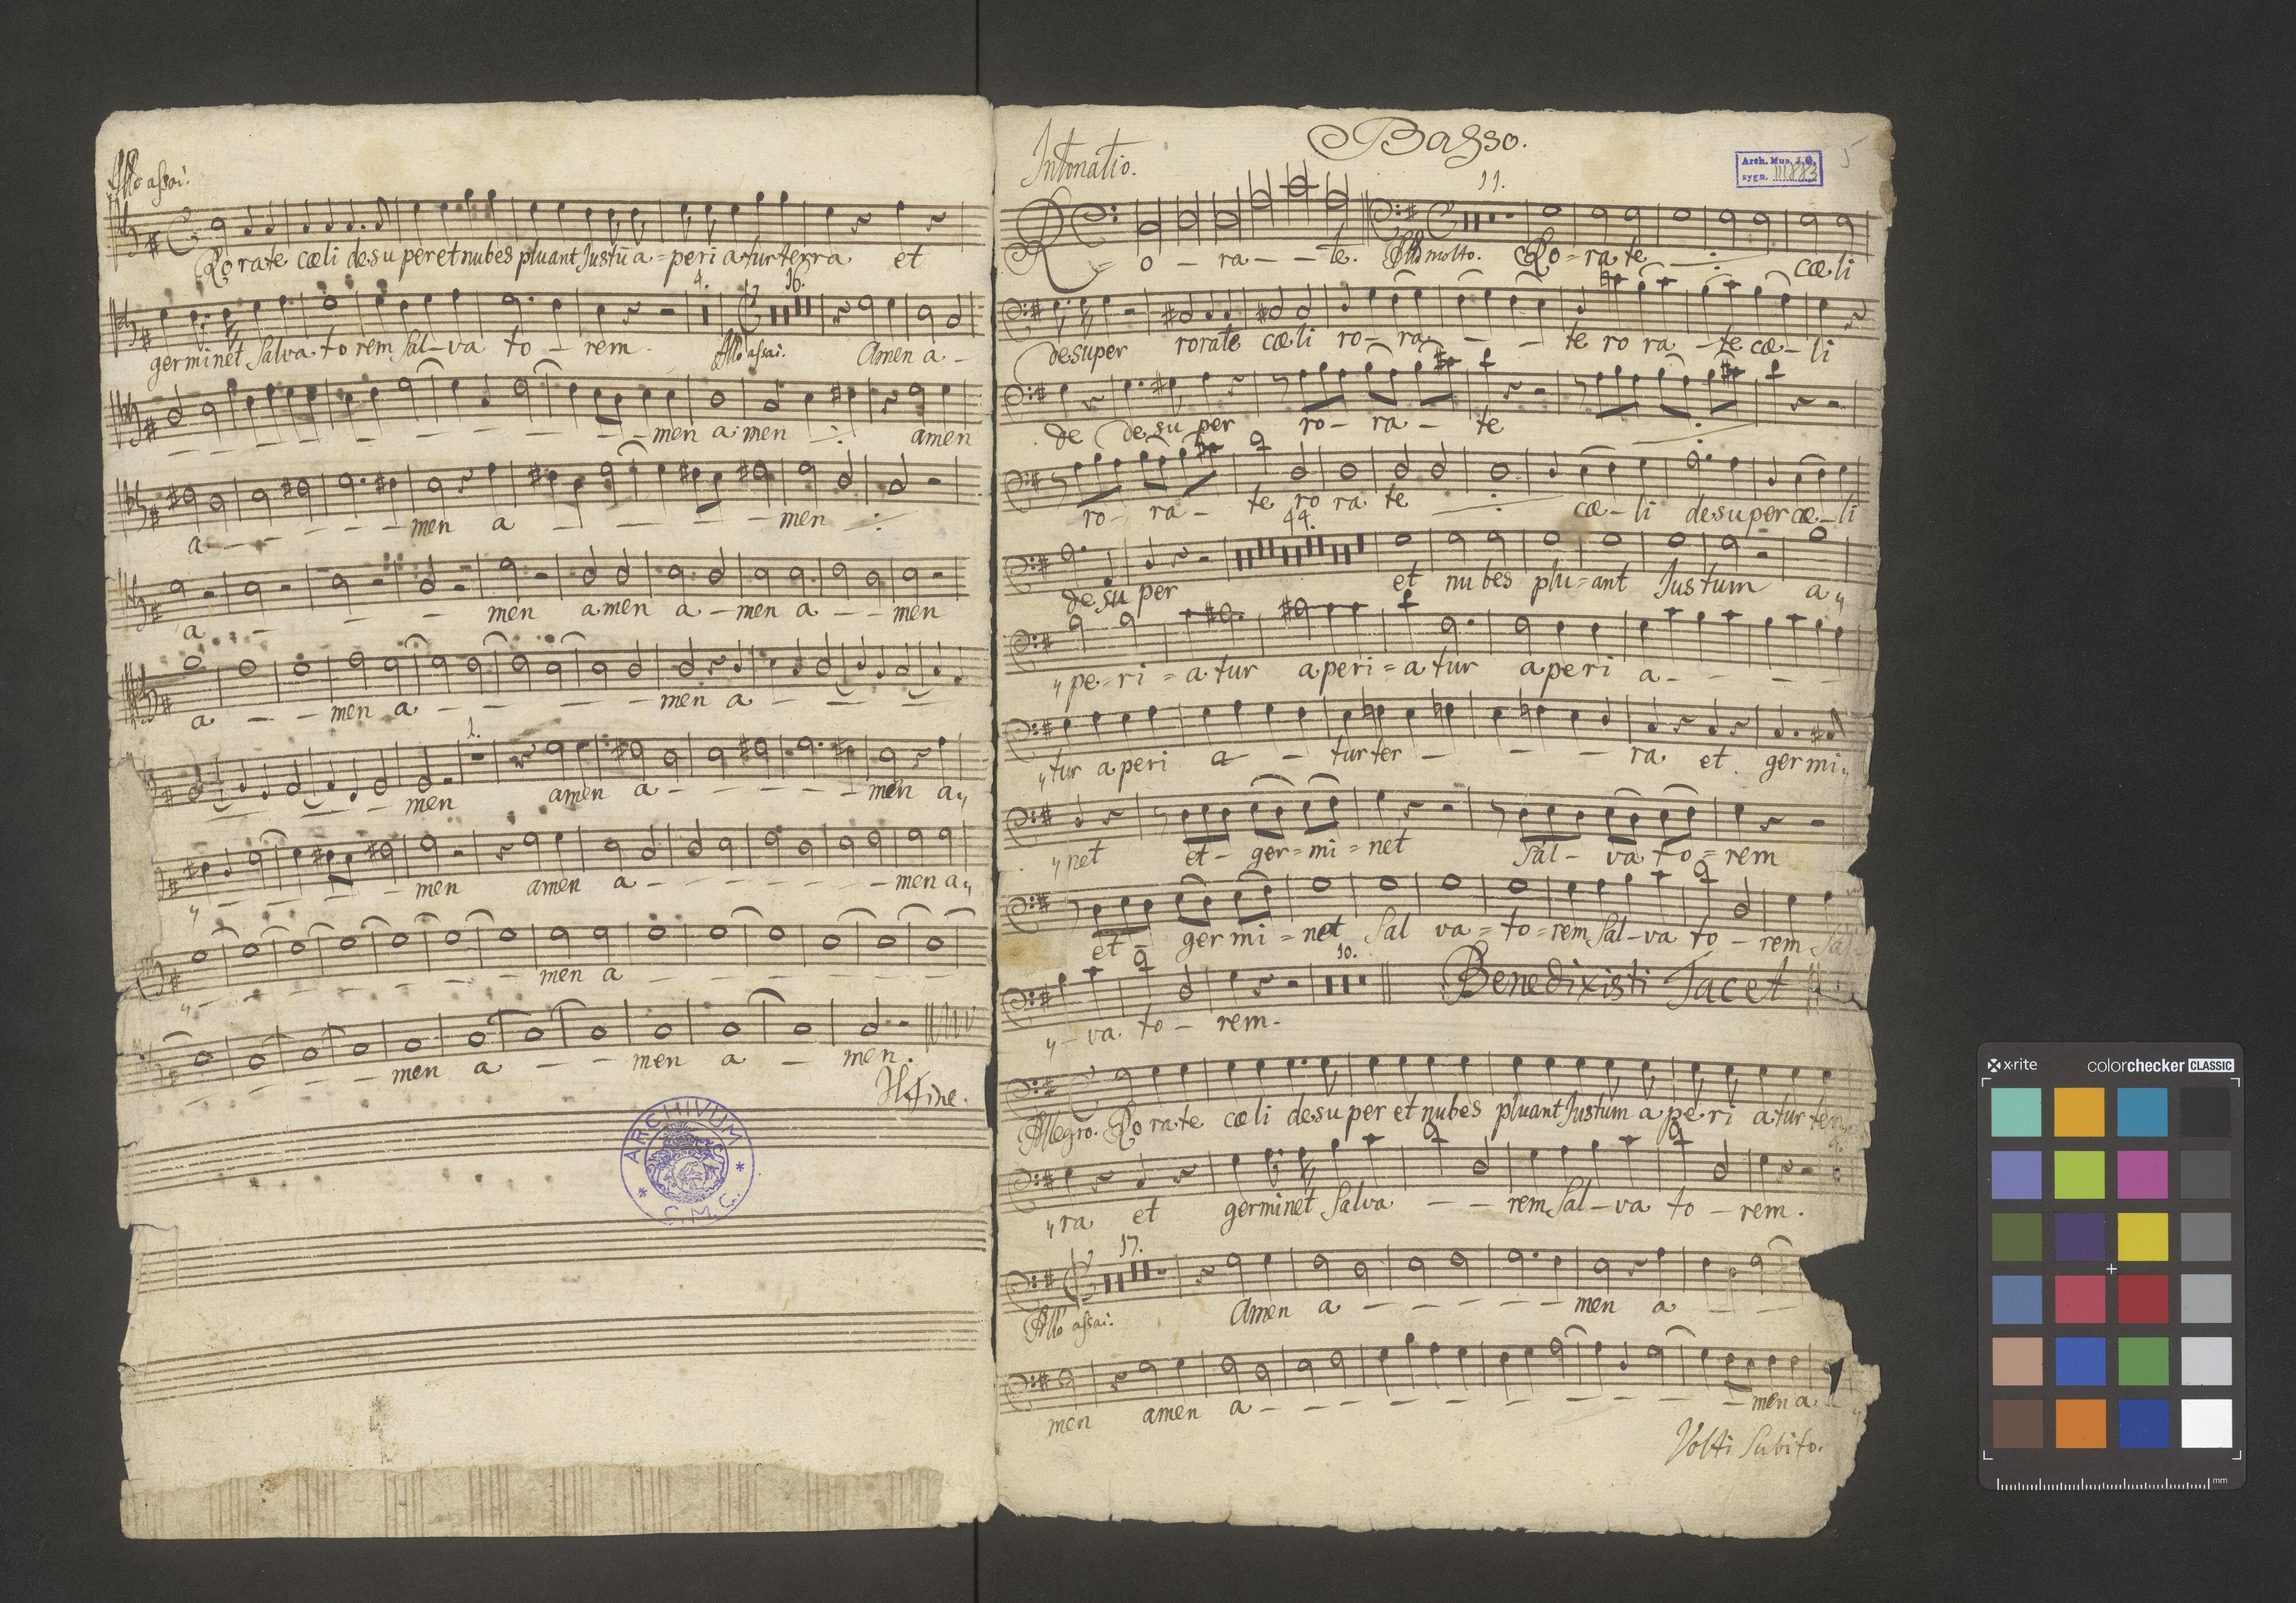 Allo assai.
Rorate cœli desuper et nubes pluant Justū a = peri atur terra et
4. 16.
germinet Salva to rem Sal - va to - rem. Allo assai. Amen a -
- - - - - - - - men a men ⁒ amen
a - - - - - men a - - - - men ⁒
a - - - men amen a - men a - - men
a - - men a - - - - men a - - -
1.
- - - - men amen a - - - - - men a„
„ - - - - men amen a - - - - - men a„
„ - - - - - - - men a - - - - -
- - - - men a - - men a - men.
Il Fine.
ARCHIVUM
C.M.C.
Basso.
Intonatio.
Arch. Mus. J.G.
sygn. III 883
5
11.
R = o - ra - - te. Allo molto. Ro = ra te ⁒ cœ li
desuper rorate cœli ro - ra - - - te ro ra - te cœ - li
de desu per ro - ra - te ⁒
ro - ra - te ro ra te ⁒ cœ - li desuper cœ - li
44.
desu per et nu bes plu = ant Justum a„
„pe = ri = a tur aperi = a tur aperi a - - - -
„tur aperi a - - tur ter - - - ra et germi„
„net et - ger = mi = net Sal - va to = rem
et - ger mi = net Sal va = to = rem Sal - va to - rem Sal
10.
„ - va to - rem. Benedixisti Tacet
Allegro. Rorate cœli desuper et nubes pluant Justum a peri atur ter
„ra et germinet Salva - - rem Sal - va to - rem.
17.
Allo assai. Amen a - - - - - men a - -
men amen a - - - - - - - - - - men a
Volti Subito.
x·rite colorchecker CLASSIC
mm